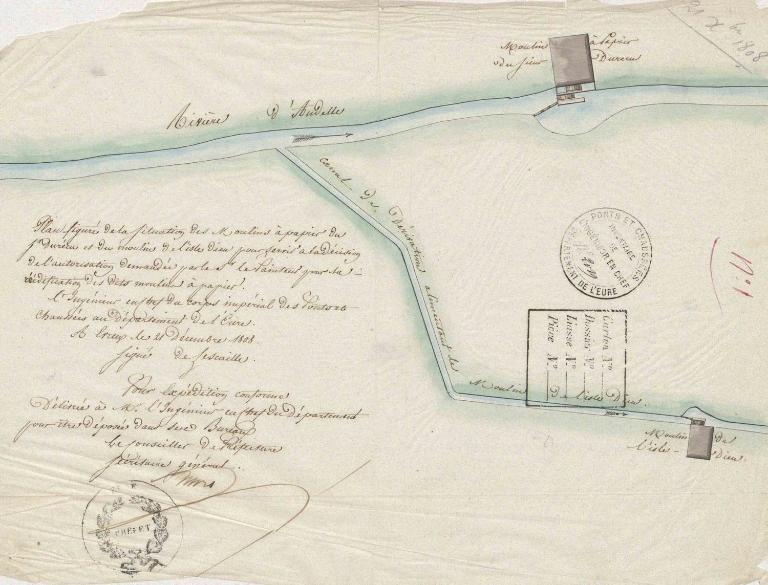 21 Xbre 1808
Moulin à Papier
du sieur Dureau
Rivière d'Andelle
Canal de Dérivation alimentant le Moulin de l'isle Dieu.
Plan figuré de la situation des Moulins à papier du
Sr Dureau et du moulin de l'isle dieu pour servir à la décision
de l'autorisation demandée par le Sr le Painteur pour la
réédification des dits moulins à papier.
L'Ingénieur en chef du corps impérial des Ponts et
Chaussées au département de l'Eure.
A Evreux, le 21 Décembre 1808
Signé de Jescaille.
Pour Expédition conforme
Délivrée à Mr. l'Ingénieur en chef du département
pour être déposée dans ses Bureaux
Le conseiller de Préfecture
secrétaire général.
PONTS ET CHAUSSÉES
INGÉNIEUR EN CHEF
DÉPARTEMENT DE L'EURE
No 1
Carton No
Dossier No
Liasse No
Pièce No
Moulin de
l'isle Dieu.
PRÉFET